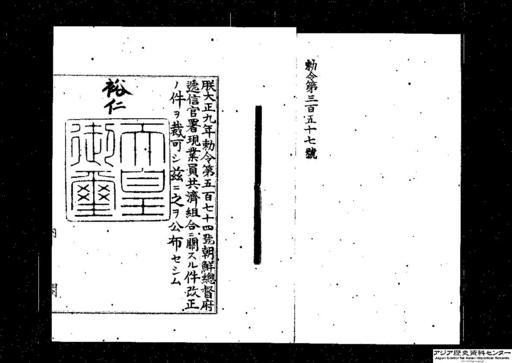 勅令第三百五十七號
朕大正九年勅令第五百七十四號朝鮮總督府
遞信官署現業員共濟組合ニ關スル件改正
ノ件ヲ裁可シ茲ニ之ヲ公布セシム
裕仁
天皇
御璽
内閣
アジア歴史資料センター
Japan Center for Asian Historical Records